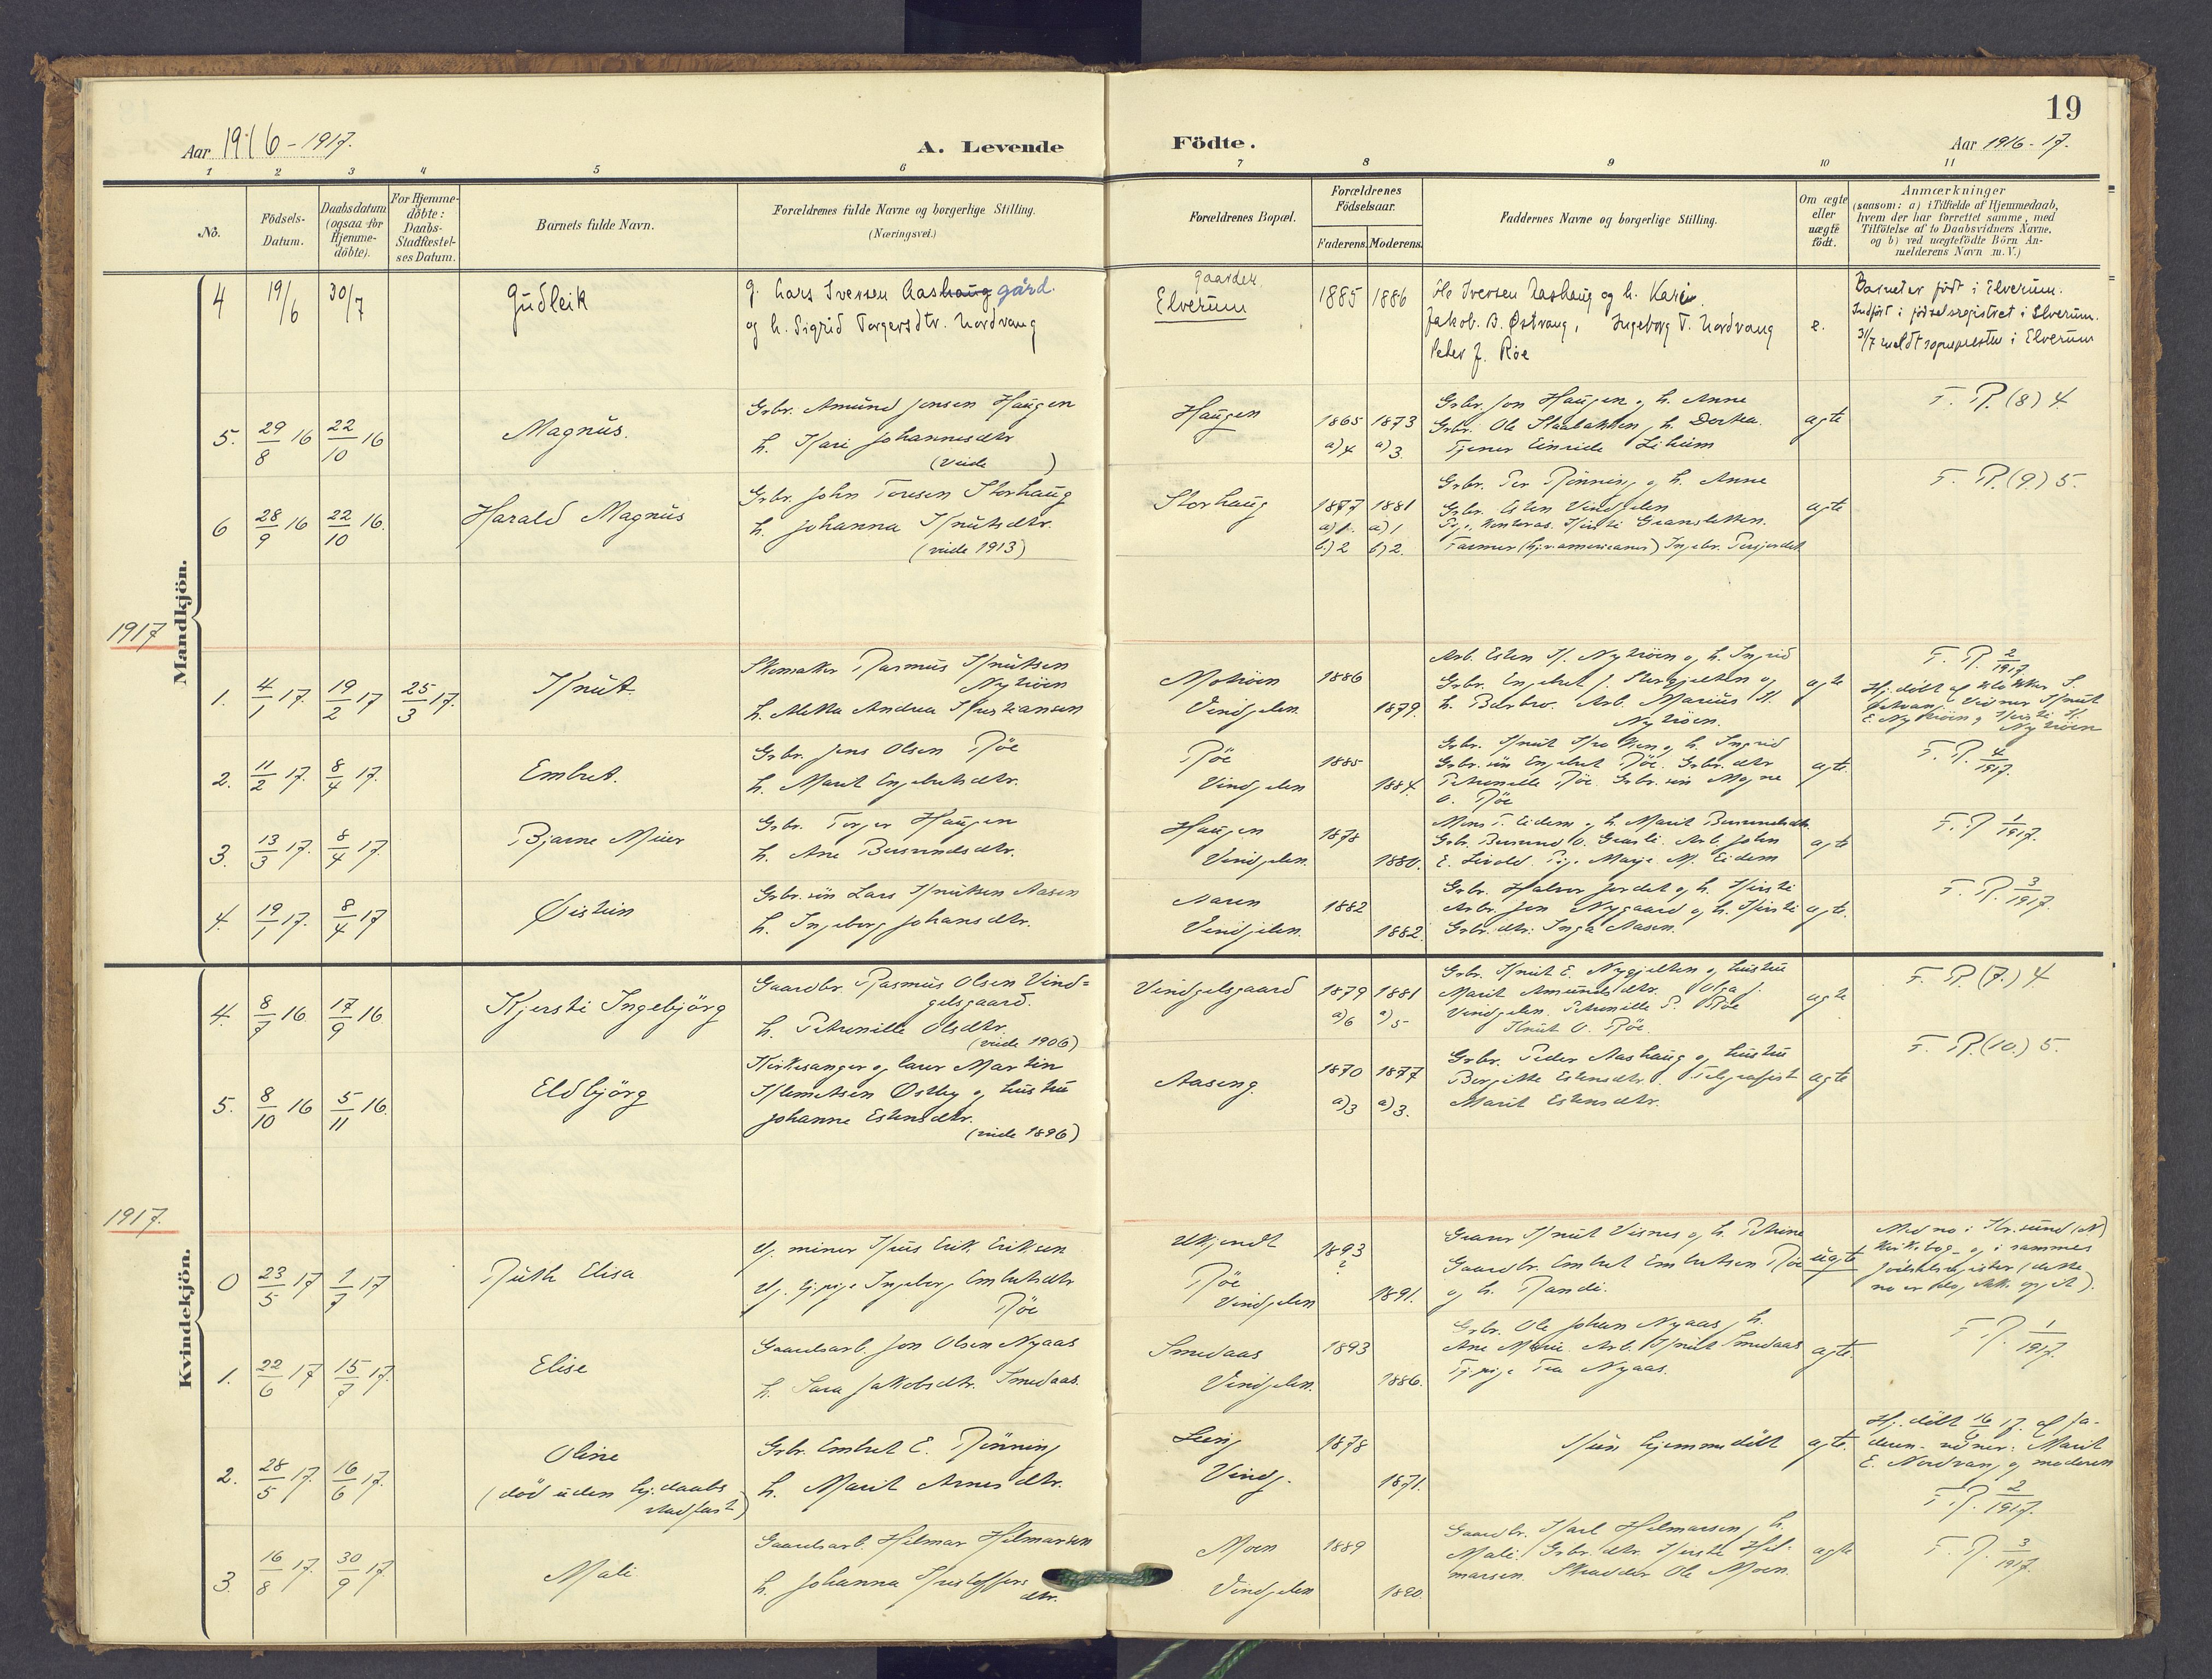 19
Aar 1916-1917.
A. Levende
Födte.
Aar 1916-17.
1 2 3 4 5 6 7 8 9 10 11
No.
Födsels-
Datum.
Daabsdatum
(ogsaa for
Hjemme-
döbte).
For Hjemme-
döbte:
Daabs-
Stadfæstel-
ses Datum.
Barnets fulde Navn.
Forældrenes fulde Navne og borgerlige Stilling.
(Næringsvei.)
Forældrenes Bopæl.
Forældrenes
Födselsaar.
Faderens. Moderens.
Faddernes Navne og borgerlige Stilling.
Om ægte
eller
uægte
födt.
Anmærkninger
(saasom: a) i Tilfælde af Hjemmedaab,
hvem der har forrettet samme, med
Tilföielse af to Daabsvidners Navne.
og b) ved uægtefödte Börn An-
melderens Navn m.V.)
Mandkjön.
4 19/6 30/7 Gudleik
g. Lars Iversen Aashaug gård.
og h. Sigrid Torgersdtr. Nordvang
gaarder
Elverum
1885 1886
Ole Iversen Aashaug og h. Kari.
Jakob. B. Østvang, Ingeborg T. Nordvang
Peder J. Røe
e.
Barnet er født i Elverum.
Indført i fødselsregistret i Elverum.
31/7 meldt sognepresten i Elverum
5. 29/8 16 22/10 16 Magnus.
Grbr. Amund Jonsen Haugen
h. Kari Johannesdtr
(vide )
Haugen
1865 1873
a) 4 a) 3.
Grbr. Jon Haugen og h. Anne
Grbr. Ole h. Dortea.
Tjener Einride
ægte
F. R. (8) 4.
6 28/9 16 22/10 16. Harald Magnus
Grbr. John Toresen Storhaug
h. Johanna Knutsdtr.
(vide 1913)
Storhaug
1877 1881
a) 1. a) 1
b.) 2 b) 2.
Grbr. Per Rønning og h. Anne
Grbr. Esten Vindgelen
Farmer (hj.v. americaner) Ingebr.
ægte
F. R. (9.) 5.
1917
1. 4/1 17. 19/2 17 25/3 17. Knut.
Skomaker Rasmus Knutsen
Nytrøen
h. Metta Andrea Kristiansen
Motrøen
Vindgelen.
1886
1879.
Arb. Esten K. Nytrøen og h. Ingrid
Grbr. Engebret J. og
h. Barbro. Arb. Marius K.
Nytrøen.
ægte
F. R. 2/1917.
Hj. døbt af klokker S.
Østvang. Vidner Knut
E. Nytrøen og Kirsti K.
Nytrøen
2. 11/2 17. 8/4 17. Embret.
Grbr. Jens Olsen Røe
h. Marit Engebretsdtr.
Røe
Vindgelen
1885
1884.
Grbr. Knut og h. Ingrid
Grbr. søn Engebret Røe. Grbr. dtr
Petronelle Røe. Grbr. søn Magne
O. Røe
ægte.
F. R. 4/1917.
3. 13/3 17. 8/4 17. Bjarne Meier
Grbr. Torger Haugen
h. Ane Bersvendsdtr.
Haugen
Vindgelen.
1878
1880.
Mons T. Eidem og h. Marit Bersvendsdtr.
Grbr. Bersvend O. Arb. John
E. Livold. Pige Marje M. Eidem
ægte
F. R. 1/1917.
4. 19/1 17. 8/4 17 Øistein
Grbr. søn Lars Knutsen Aasen
h. Ingeborg Johansdtr.
Aasen
Vindgelen.
1882
1882.
Grbr. Halvor Jordet og h. Kirsti
Arbr. Jon Nygaard og h. Kirsti
Grbr. dtr. Inga Aasen.
ægte.
F. R. 3/1917.
Kvindekjön.
4. 8/7 16 17/9 16 Kjersti Ingebjörg
Gaardbr. Rasmus Olsen Vind=
gelsgaard.
h. Petronille Olsdtr.
(vide 1906)
Vindgelsgaard
1879 1881
a) 6 a) 5
Grbr. Knut E. Nygjelten og hustru
Marit Amundsdtr. Olga J.
Vindgelen. Petronille P. Røe
Knut O. Røe.
ægte
F. R. (7.) 4
5. 8/10 16 5/11 16. Eldbjörg
Kirkesanger og lærer Martin
Klemetsen Østby og hustru
Johanne Estensdtr.
(vide 1896)
Aaseng.
1870 1877
a) 3 a) 3.
Grbr. Peder Aashaug og hustru
Bergitte Estensdtr. Telegrafist
Marit Estensdtr.
ægte
F. R. (10.) 5.
1917.
0 23/5 17 1/7 17 Ruth Elisa
Ug. miner Erik Eriksen
Ug. tj.pige Ingeborg Embretsdtr
Røe
Ukjendt
Røe
Vindgelen
1893
?
1891.
Knut Visnes og h. Petrine
Gaardbr. Embret Embretsen Røe
og h. Randi.
uægte
Med no i Kr.sund (N)
kirkebog og i sammes
fødselsregister (dette
no er dog ikke opgit).
1. 22/6 17 15/7 17. Elise
Gaardsarb. Jon Olsen Nyaas
h. Sara Jakobsdtr. Smedaas.
Smedaas
Vindgelen.
1893
1886.
Grbr. Ole Johan Nyaas, h.
Ane Marie. Arb. Knut Smedaas
Tj.pige Tea Nyaas.
ægte.
F. R. 1/1917.
2. 28/5 17. 16/6 17. Oline
(død uden hj.daabs
stadfæst)
Grbr. Embret E. Rønning
h. Marit Arnesdtr.
Vindg.
1878
1871.
Kun hjemmedøbt
ægte.
Hj. døbt 16/6 17. af fa-
deren. vidner: Marit
E. Nordvang og moderen
F. R. 2/1917.
3. 16/8 17. 30/9 17 Mali
Gaardsarb. Hilmar Hilmarsen
h. Johanna Kristoffers
dtr.
Moen
Vindgelen
1889
1890.
Gaardbr. Karl Hilmarsen, h.
Mali. Grbr. dtr. Kirsti Hil-
marsen. Skrædder Ole Moen.
ægte
F. R. 3/1917.